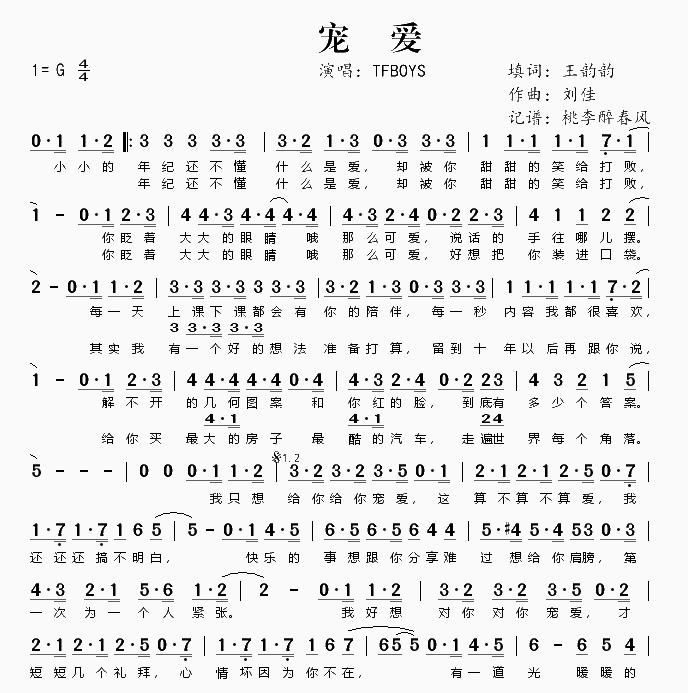 宠 爱
1=G 4/4 演唱：TFBOYS 填词：王韵韵
作曲：刘佳
记谱：桃李醉春风
0·1 1·2 ‖: 3 3 3 3·3 | 3·2 0·1 3·3 3·3 | 1 1·1 1·1 7·1 |
小小的 年纪还不懂 什么是爱，却被你 甜甜的笑给打败，
年纪还不懂 什么是爱，却被你 甜甜的笑给打败，
1 - 0·1 2·3 | 4·4 3·4 4·4 4·4 | 4·3 2·4 0·2 2·3 | 4 1 2 2 |
你眨着 大大的眼睛 哦 那么可爱，说话的 手往哪儿摆。
你眨着 大大的眼睛 哦 那么可爱，好想把 你装进口袋。
2 - 0·1 1·2 | 3·3 3·3 3·3 3·3 | 3·2 1·2 0·3 3·3 | 1·1 1·1 1·1 7·2 |
每一天 上课下课都会有 你的陪伴，每一秒 内容我都很喜欢，
3 3·3 3·3
其实我 有一个好的想法 准备打算，留到十 年以后再跟你说，
1 - 0·1 2·3 | 4·4 4·4 4·4 0·4 | 4·3 2·4 0·2 23 | 4 3 2 1 5 |
解不开 的几何图案 和 你红的脸，到底有 多少个答案。
4·1 4·1 24
给你买 最大的房子 最 酷的汽车，走遍世 界每个角落。
5 - - - | 0 0 0·1 1·2 | 𝄋1.2 3·2 3·2 3·5 0·1 | 2·1 2·1 2·5 0·7 |
我只想 给你给你宠爱，这 算不算不算爱，我
1·7 1·7 1 6 5 | 5 - 0·1 4·5 | 6·5 6·5 6·5 4 4 | 5·#4 5·4 53 0·3 |
还还还搞不明白， 快乐的 事想跟你分享难 过想给你肩膀，第
4·3 2·1 5·6 1·2 | 2 - 0·1 1·2 | 3·2 3·2 3·5 0·2 |
一次为一个人紧张。 我好想 对你对你宠爱，才
2·1 2·1 2·5 0·7 | 1·7 1·7 1 6 7 | 65 5 0·1 4·5 | 6 - 6 5 4 |
短短几个礼拜，心 情坏因为你不在， 有一道 光 暖暖的